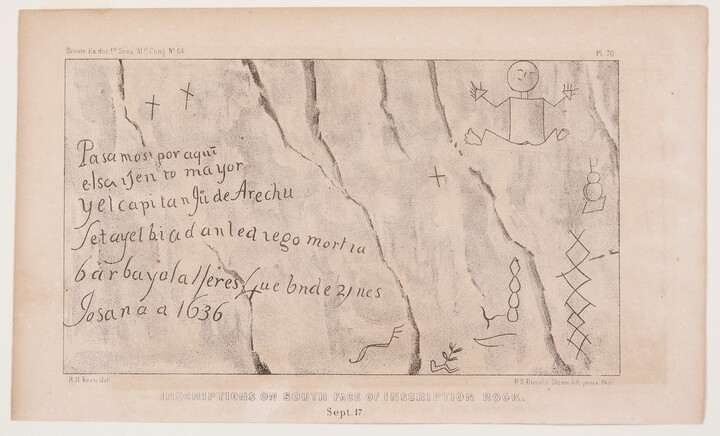 Senate Ex. doc. 1st Sess. 31st Cong. No. 64.
Pl. 70
Pasamos por aqui
elsarJento mayor
yelcapitanJu deArechu
letayelbiadanledregomortin
barbayolalferes que bnde 21nes
Josanaa 1636
R.H. Kern del.
P.S. Duval's Steam lith. press Phil.
INSCRIPTIONS ON SOUTH FACE OF INSCRIPTION ROCK.
Sept. 17.